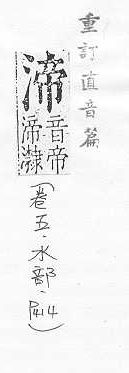 重訂直音篇
渧
音帝
渧
(卷五·水部·P414)